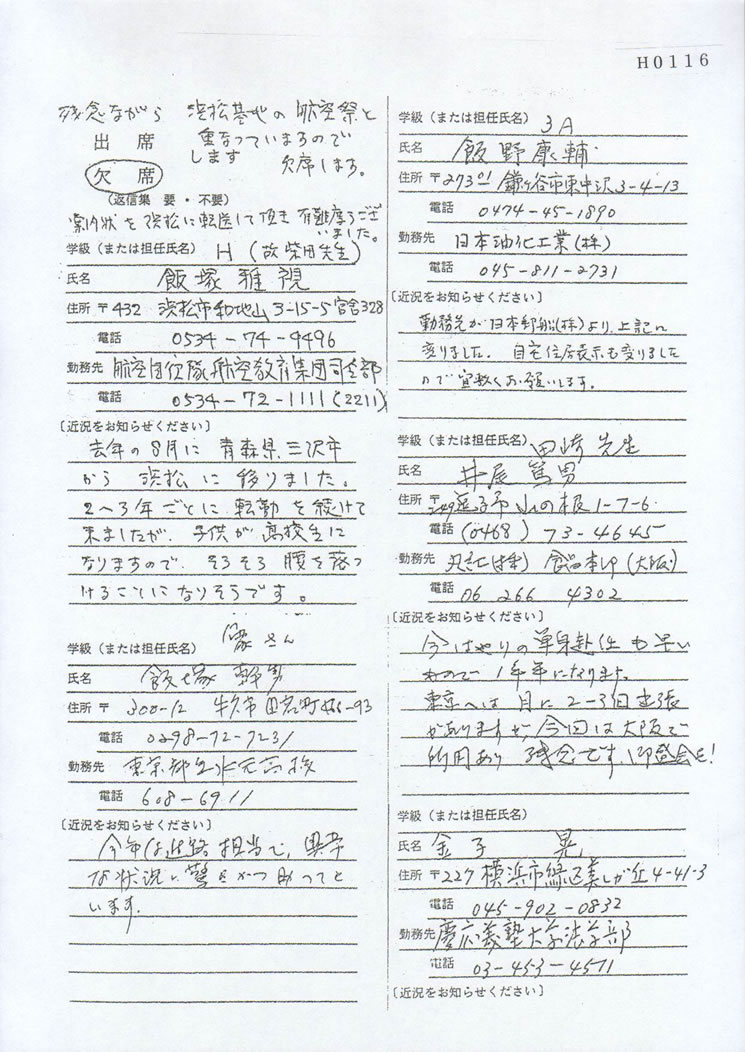 H0116
残念ながら 浜松基地の航空祭と
出席 重なっていますので
します 欠席します。
欠席
(返信集 要・不要)
案内状を浜松に転送して頂き有難度うござ
いました。
学級(または担任氏名) H (故柴田先生)
氏名 飯塚雅視
住所 〒432 浜松市和地山3-15-5官舎328
電話 0534-74-9496
勤務先 航空自衛隊航空教育集団司令部
電話 0534-72-1111(2211)
〔近況をお知らせください〕
去年の8月に 青森県三沢市
から 浜松に 移りました。
2〜3年ごとに 転勤を続けて
来ましたが、子供が高校生に
なりますので、そろそろ 腰を落つ
けることになりそうです。
学級(または担任氏名)
氏名 飯塚
住所 〒300-12 牛久市田宮町466-93
電話 0298-72-7231
勤務先 東京都立水元高校
電話 608-6911
〔近況をお知らせください〕
今年は進路担当で、異常
な状況に驚き
います.
学級(または担任氏名) 3A
氏名 飯野康輔
住所 〒273-01 鎌ヶ谷市東中沢3-4-13
電話 0474-45-1890
勤務先 日本油化工業(株)
電話 045-811-2731
〔近況をお知らせください〕
勤務先が日本郵船(株)より、上記に
変りました. 自宅住居表示も変りました
ので宜敷くお願いします。
学級(または担任氏名) 田崎先生
氏名 井尾篤男
住所 〒249 逗子市山の根1-7-6
電話 (0468) 73-4645
勤務先 丸紅(株) 食品本部(大阪)
電話 06 266 4302
〔近況をお知らせください〕
今はやりの単身赴任も早い
もので1年半になります。
東京へは月に2-3回出張
がありますが、今回は大阪で
所用あり 残念です。御盛会を!
学級(または担任氏名)
氏名 金子 晃
住所 〒227 横浜市緑区美しが丘4-41-3
電話 045-902-0832
勤務先 慶応義塾大学法学部
電話 03-453-4511
〔近況をお知らせください〕